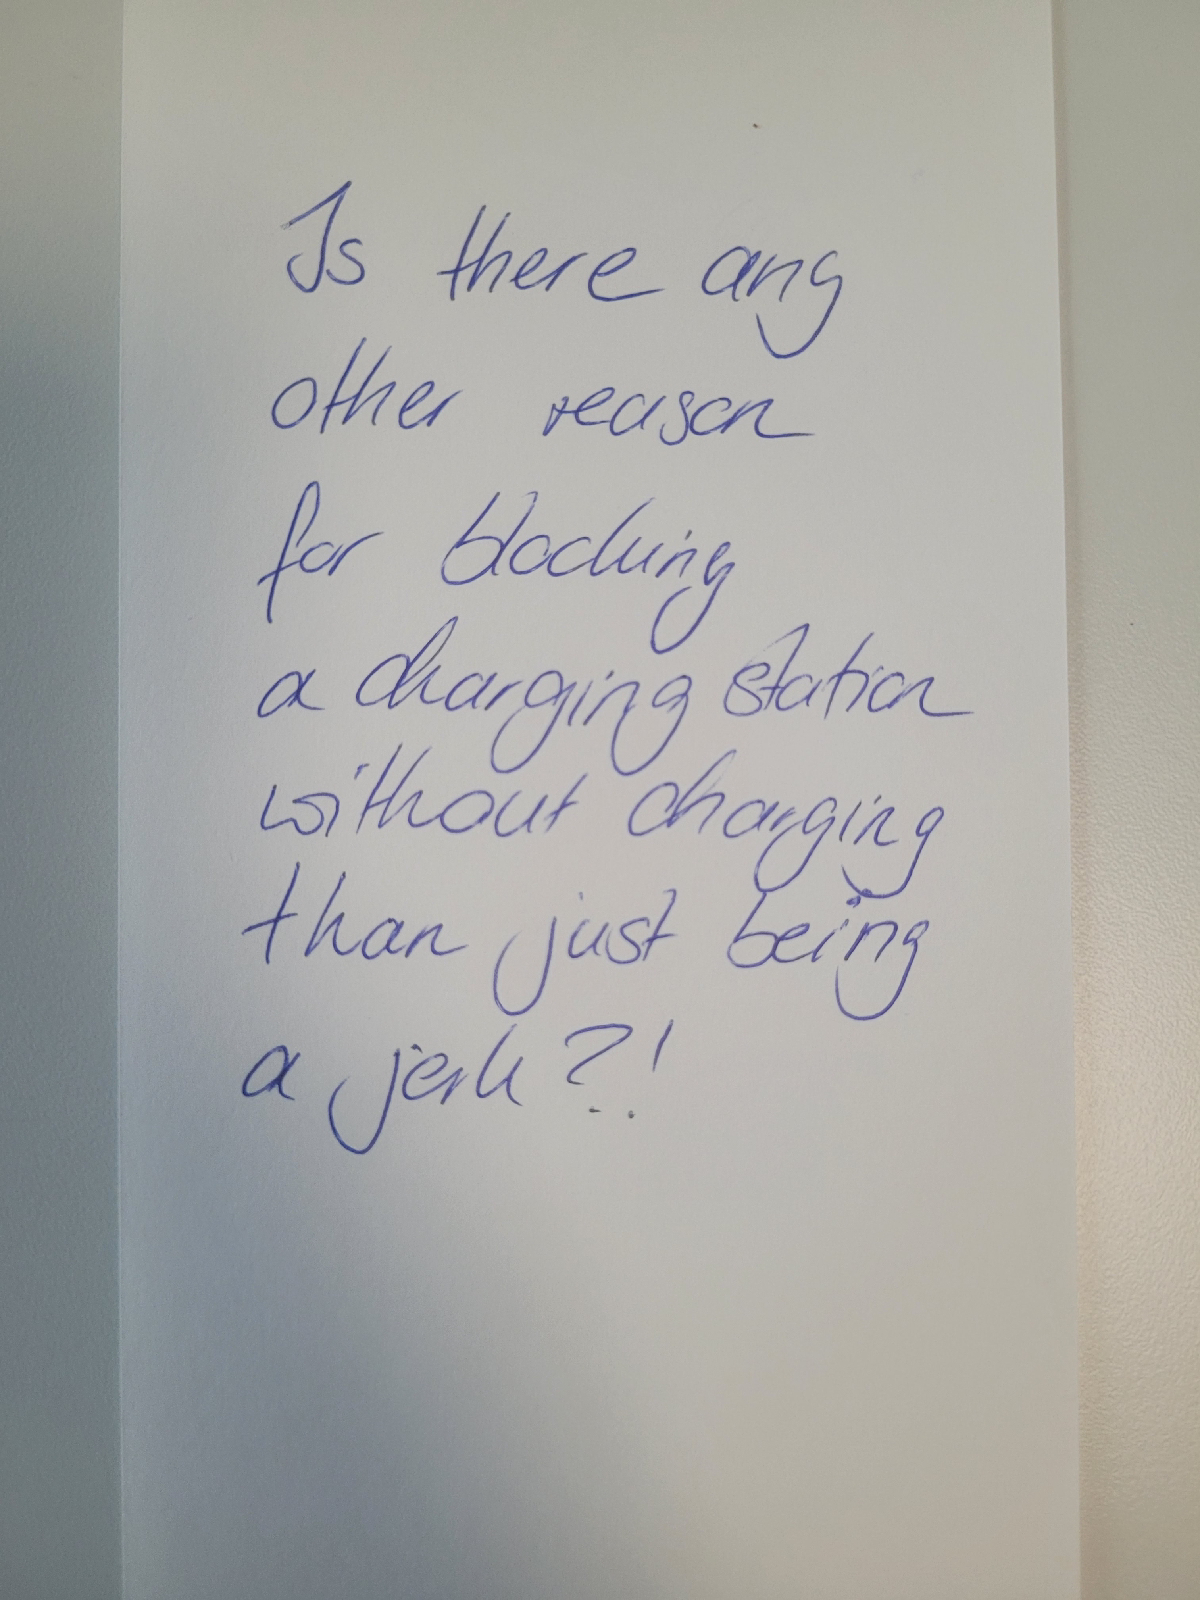 Is there any
other reason
for blocking
a charging station
without charging
than just being
a jerk?!